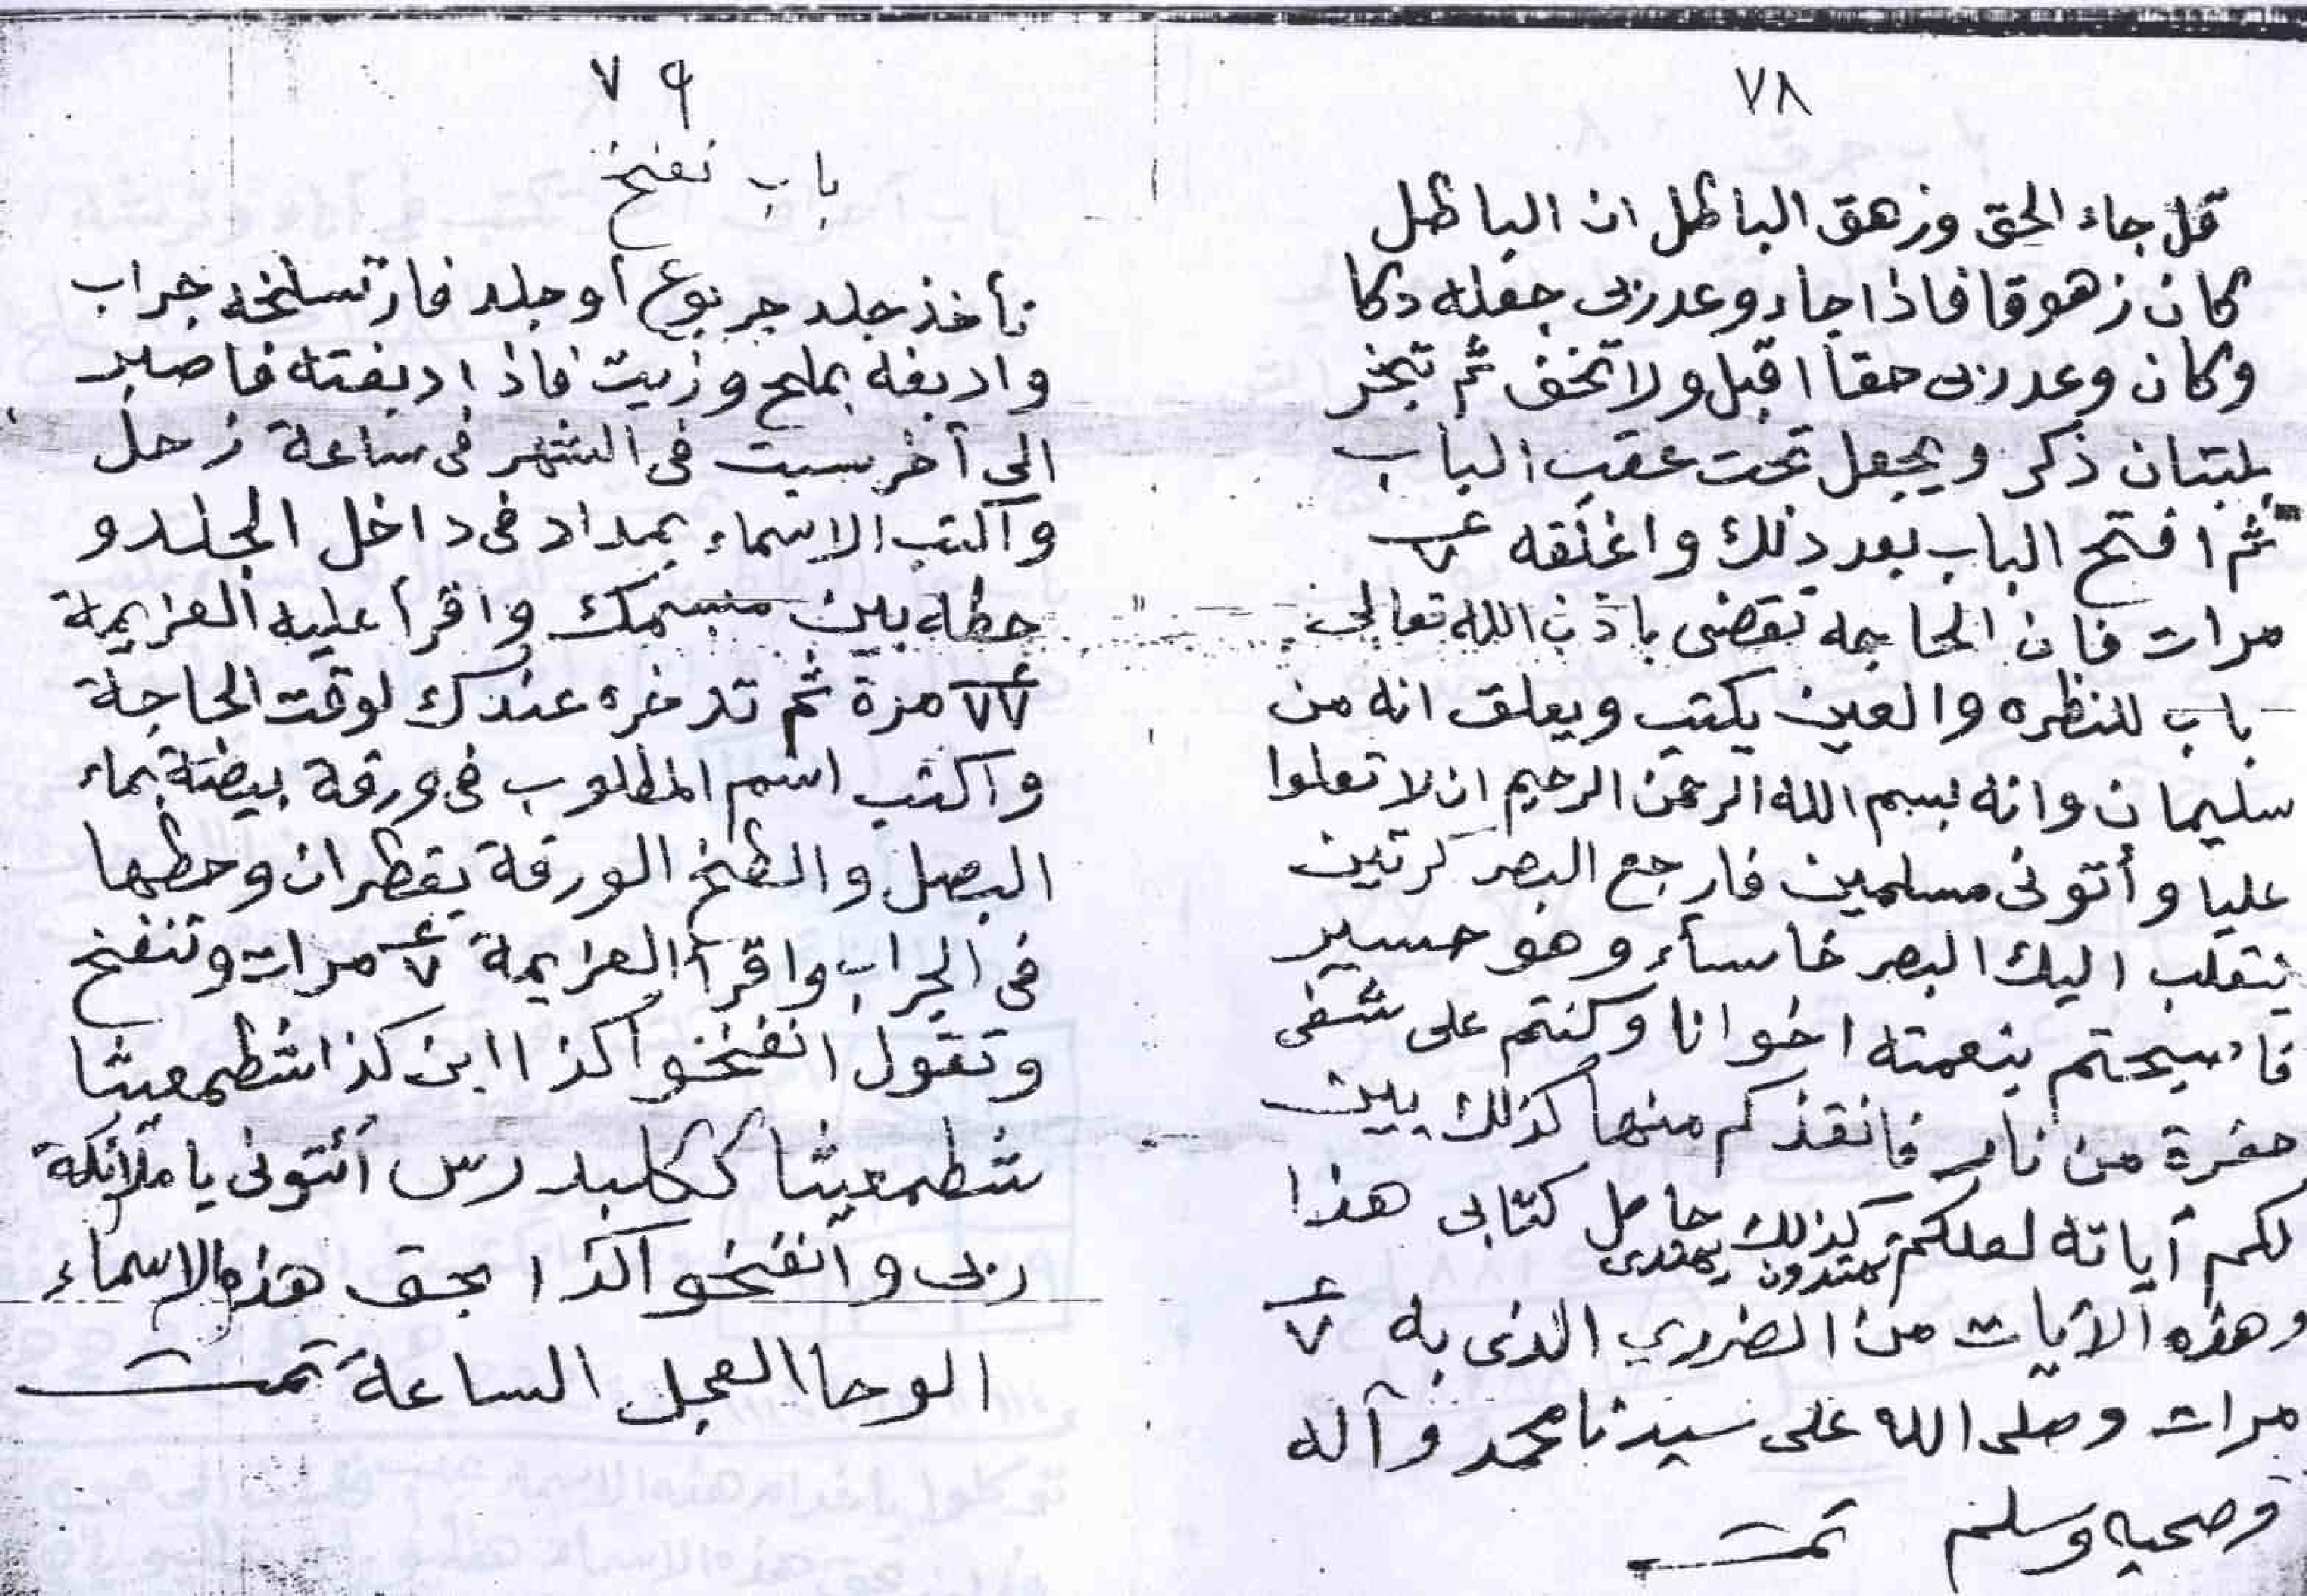 ٧٨
قل جاء الحق وزهق الباطل ان الباطل
كان زهوقا فاذا جاء وعد ربى جعله دكا
وكان وعد ربى حقا اقبل ولا تخف ثم تبخر
بلبتان ذكر ويجعل تحت عقب الباب
ثم افتح الباب بعد ذلك واغلقه ٧
مرات فان الحاجه تقضى باذن الله تعالى
باب للنظره والعين يكتب ويعلق انه من
سليمان وانه بسم الله الرحمن الرحيم ان لا تعلوا
عليا وأتونى مسلمين فارجع البصر كرتين
ينقلب اليك البصر خاسأء وهو حسير
فاصبحتم بنعمته اخوانا وكنتم على شفى
حفرة من نار فانقذكم منها كذلك يبين
لكم آياته لعلكم تهتدون كذلك يهتدى حامل كتابى هذا
وهذه الآيات من الضروري الذى به ٧
مرات وصلى الله على سيدنا محمد وآله
وصحبه وسلم تمت
٧٩
باب نفخ
تأخذ جلد جربوع أو جلد فار تسلخه جراب
وادبغه بملح وزيت فاذا دبغته فاصبر
الى آخر سبت فى الشهر فى ساعة زحل
واكتب الاسماء بمداد فى داخل الجلد و
حطه بين مبسمك واقرأ عليه العزيمة
٧٧ مرة ثم تدخره عندك لوقت الحاجة
واكتب اسم المطلوب فى ورقة بيضة بماء
البصل والطخ الورقة بقطران وحطها
فى الجراب واقرأ العزيمة ٧ مرات وتنفخ
وتقول انفخوا كذا ابن كذا شطمعيثا
شطمعيثا أئتونى يا ملائكة
ربى وأنفخوا كذا بحق هذه الاسماء
الوحا العجل الساعة تمت